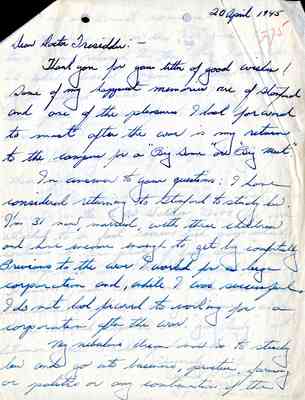 20 April 1945
Dear Doctor Tresidder: -
Thank you for your letter of good wishes!
Some of my happiest memories are of Stanford
and one of the pleasures I look forward
to most after the war is my return
to the campus for a "Big Game" or "Big Meet"
In answer to your questions: I have
considered returning to Stanford to study law.
I'm 31 now, married, with three children
and have income enough to get by comfortably
Previous to the war I worked for a large
corporation and, while I was successful,
I do not look forward to working for a
corporation after the war.
My nebulous dream now is to study
law and go into business, practice, farming
or politics or any combination of the